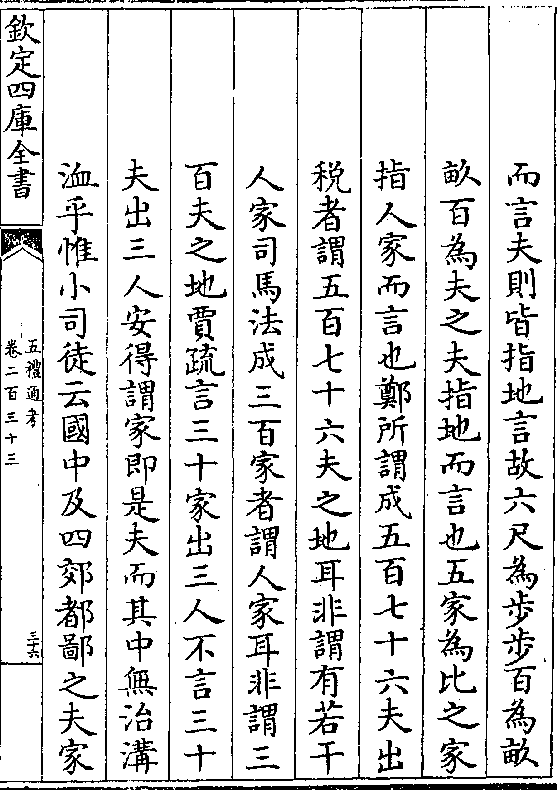 而言夫則皆指地言故六尺為步步百為畝
畝百為夫之夫指地而言也五家為比之家
指人家而言也鄭所謂成五百七十六夫出
税者謂五百七十六夫之地耳非謂有若干
人家司馬法成三百家者謂人家耳非謂三
百夫之地賈疏言三十家出三人不言三十
夫出三人安得謂家即是夫而其中無治溝
洫乎惟小司徒云國中及四郊都鄙之夫家
欽定四庫全書
五禮通考
卷二百三十三
三六